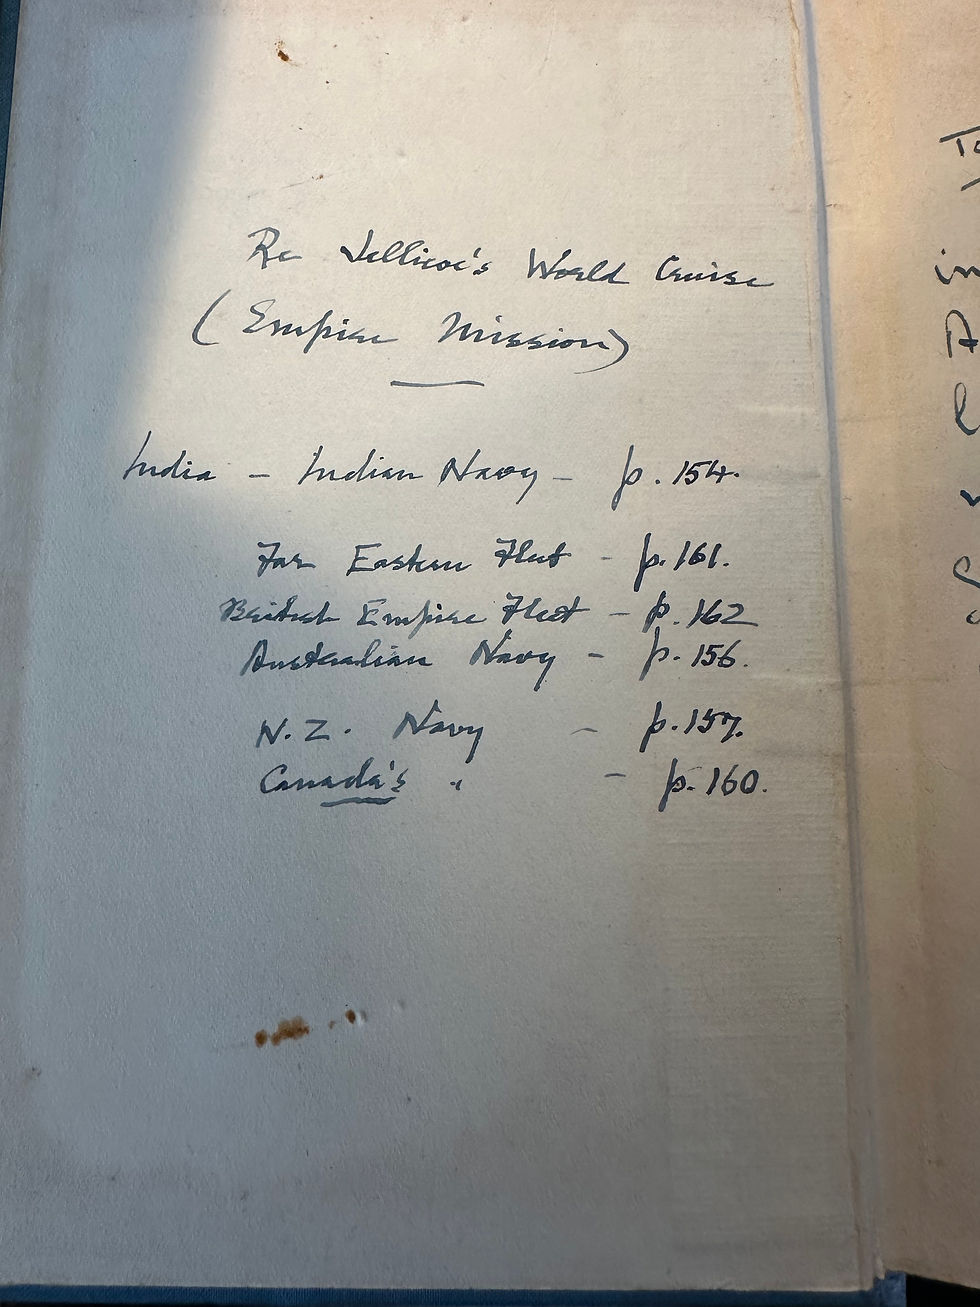 Re Jellicoe's World Cruise
(Empire Mission)
India - Indian Navy - p. 154.
Far Eastern Fleet - p. 161.
British Empire Fleet - p. 162
Australian Navy - p. 156.
N.Z. Navy - p. 157.
Canada's " - p. 160.